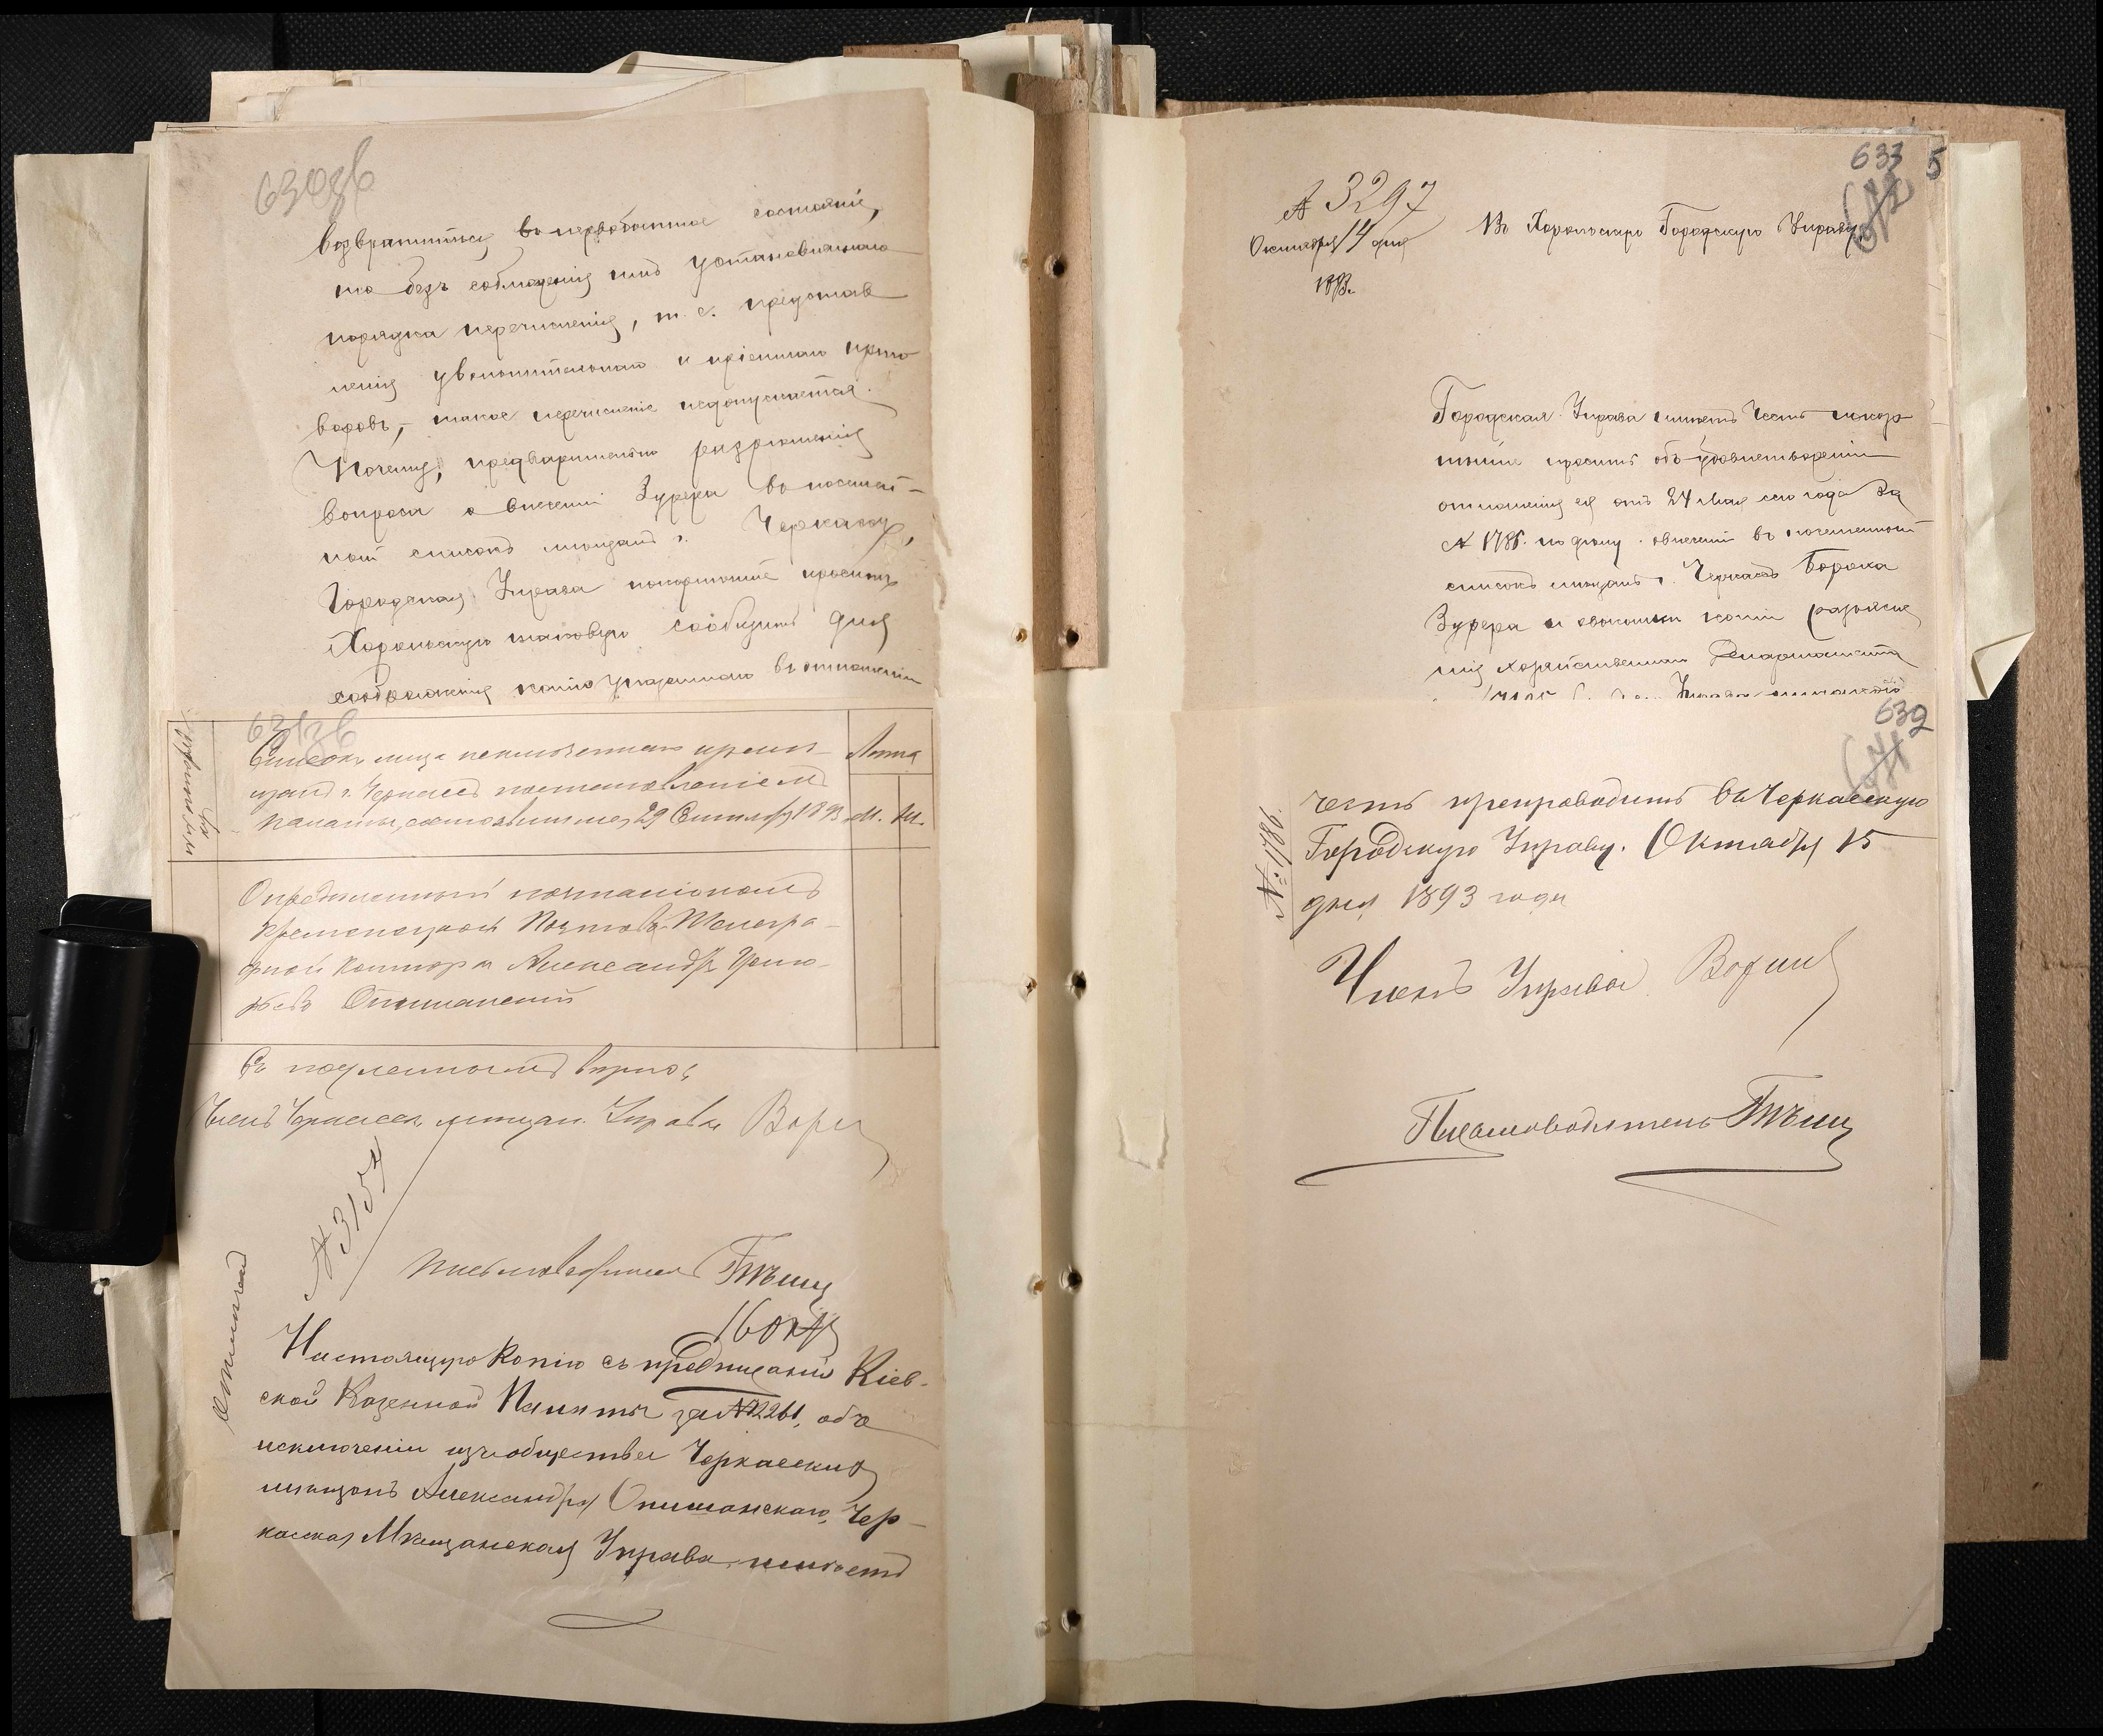 630об
возвратиться въ первобытное состояніе,
то безъ соблюденія имъ установленнаго
порядка перечисленія, т. е. представ
ленія увольнительнаго и пріемнаго приго
воровъ, такое перечисленіе недопускается.
Почему, предварительно разрѣшенія
вопроса о внесеніи Зурера въ посемей-
ный списокъ мѣщанъ г. Черкассъ,
Городская Управа покорнѣйше проситъ
Хорольскую таковую сообщить для
соображенія копію указаннаго въ отношеніи
631об
Списокъ лица исключеннаго изъ
мѣщанъ г. Черкассъ постановленіемъ
палаты, состоявшимся 29 Сентября 1893
Лѣта
М. Ж.
Опредѣленный почтальономъ
Почтово-Телегра-
фной конторы Александръ
Опишанскій
Съ подлиннымъ вѣрно:
Членъ Черкасск. мѣщан. Управы
№ 3154
Письмоводитель
16 окт
Настоящую копію съ предписанія Кіев-
ской Казенной Палаты за № 2261, объ
исключеніи изъ общества Черкасскихъ
мѣщанъ Александра Опишанскаго, Чер-
касская Мѣщанская Управа имѣетъ
633
5
№ 3297
Октября 14 дня
1893.
Въ Хорольскую Городскую Управу
Городская Управа имѣетъ честь покор
нѣйше просить объ удовлетвореніи
отношенія ея отъ 24 мая сего года за
№ 1785 по дѣлу о внесеніи въ посемейный
списокъ мѣщанъ г. Черкассъ Бороха
Зурера и о высылкѣ копіи разъясне
нія Хозяйственнаго Департамента
632
честь препроводить въ Черкасскую
Городскую Управу. Октября 15
дня 1893 года
№ 1786
Членъ Управы
Письмоводитель